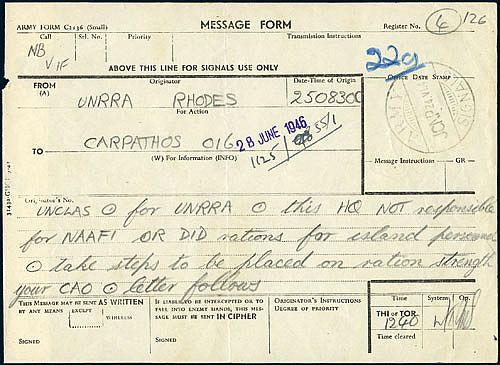 ARMY FORM C2136 (Small)
MESSAGE FORM
Register No. 4/126
Call
Srl. No.
Priority
Transmission Instructions
NB
V IF
229
ABOVE THIS LINE FOR SIGNALS USE ONLY
OFFICE DATE STAMP
FROM
(A)
Originator
Date-Time of Origin
UNRRA RHODES
250830C
For Action
TO
CARPATHOS 016
28 JUNE 1946
(W) For Information (INFO)
1125
55/1
Message Instructions
GR
SIGNALS
ARMY
Originator's No.
UNCLAS ⊙ for UNRRA ⊙ this HQ NOT responsible
for NAAFI OR DID rations for island personnel
⊙ take steps to be placed on ration strength
your CAO ⊙ letter follows
THIS MESSAGE MAY BE SENT AS WRITTEN
BY ANY MEANS EXCEPT WIRELESS
SIGNED
IF LIABLE TO BE INTERCEPTED OR TO
FALL INTO ENEMY HANDS, THIS
MESSAGE MUST BE SENT IN CIPHER
SIGNED
ORIGINATOR'S INSTRUCTIONS
DEGREE OF PRIORITY
Time
System
Op.
THI or TOR
1240
Time cleared